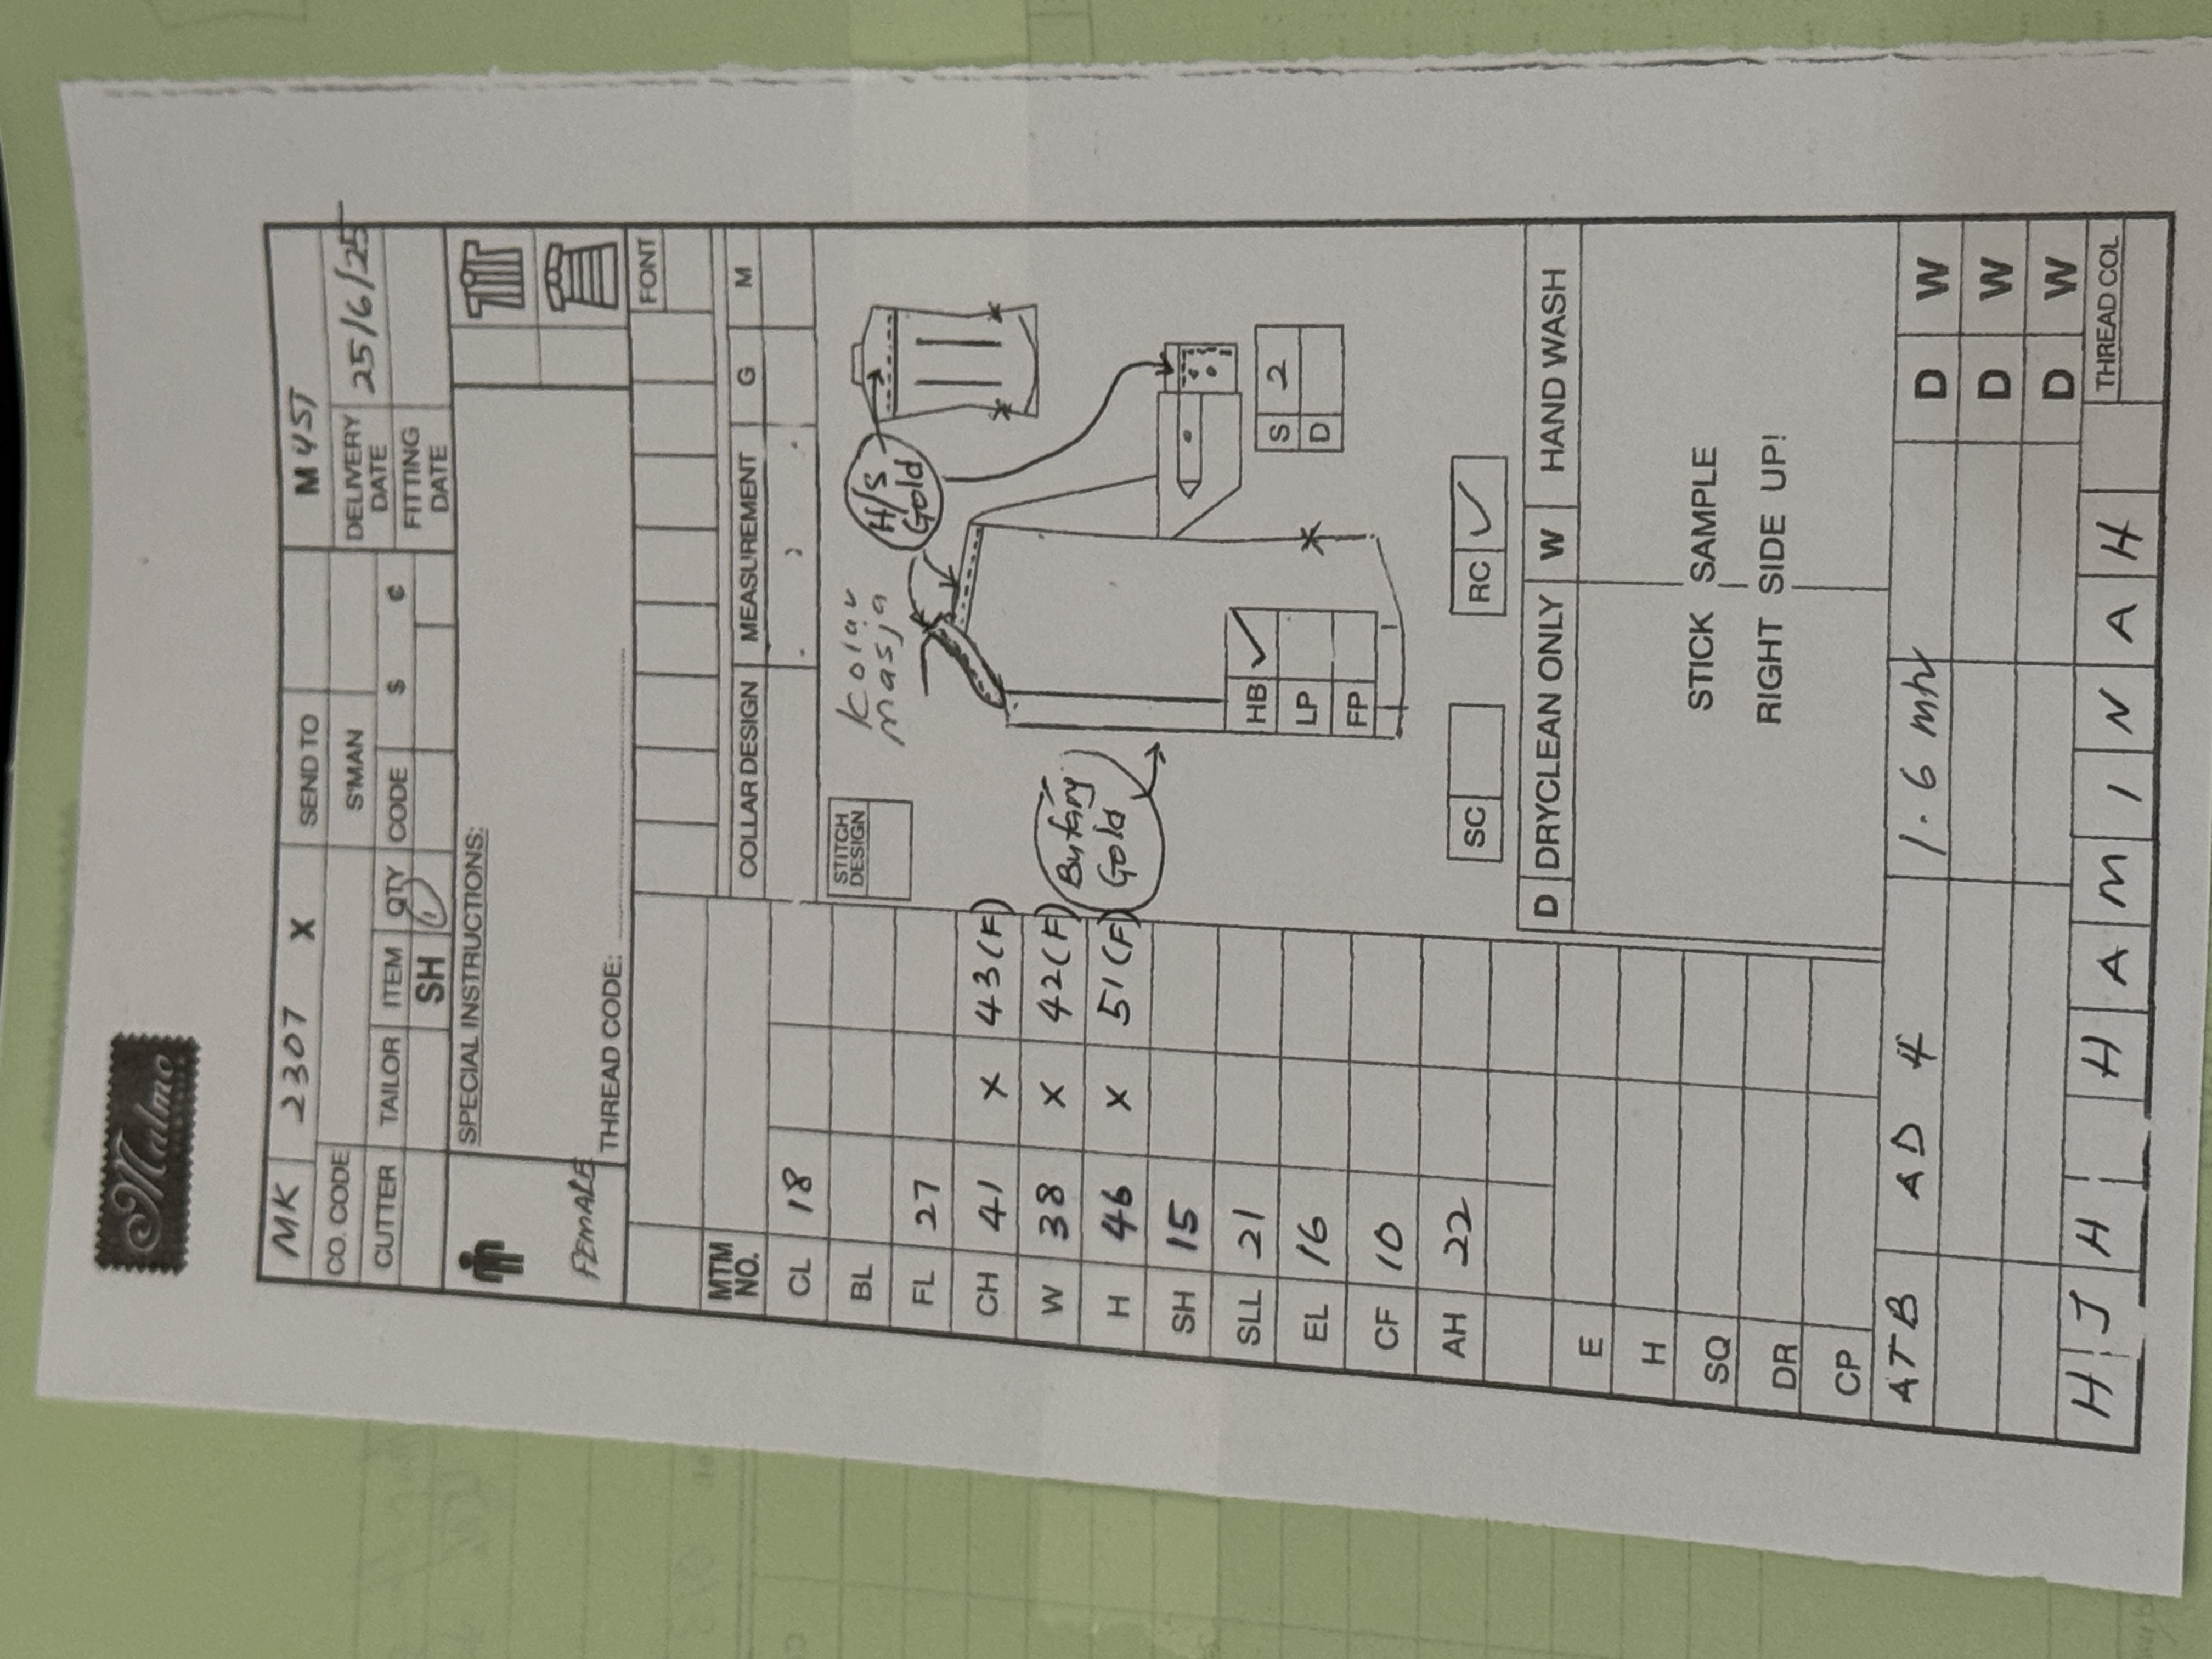 Malmo
MK 2307 X SEND TO M 45T
CO. CODE S'MAN DELIVERY DATE 25/6/25
CUTTER TAILOR ITEM QTY CODE $ ¢ FITTING DATE
SH 1
SPECIAL INSTRUCTIONS:
FEMALE
THREAD CODE:
FONT
MTM NO.
COLLAR DESIGN MEASUREMENT G M
CL 18
BL
FL 27
CH 41 X 43(F)
W 38 X 42(F)
H 46 X 51(F)
SH 15
SLL 21
EL 16
CF 10
AH 22
STITCH DESIGN
Kolar
masja
H/S
Gold
Gold
HB ✓
LP
FP
S 2
D
SC
RC ✓
D DRYCLEAN ONLY W HAND WASH
E
H
SQ
DR
CP
STICK SAMPLE
RIGHT SIDE UP!
ATB AD 4 1.6 mtr D W
D W
D W
HJH HAMINAH THREAD COL